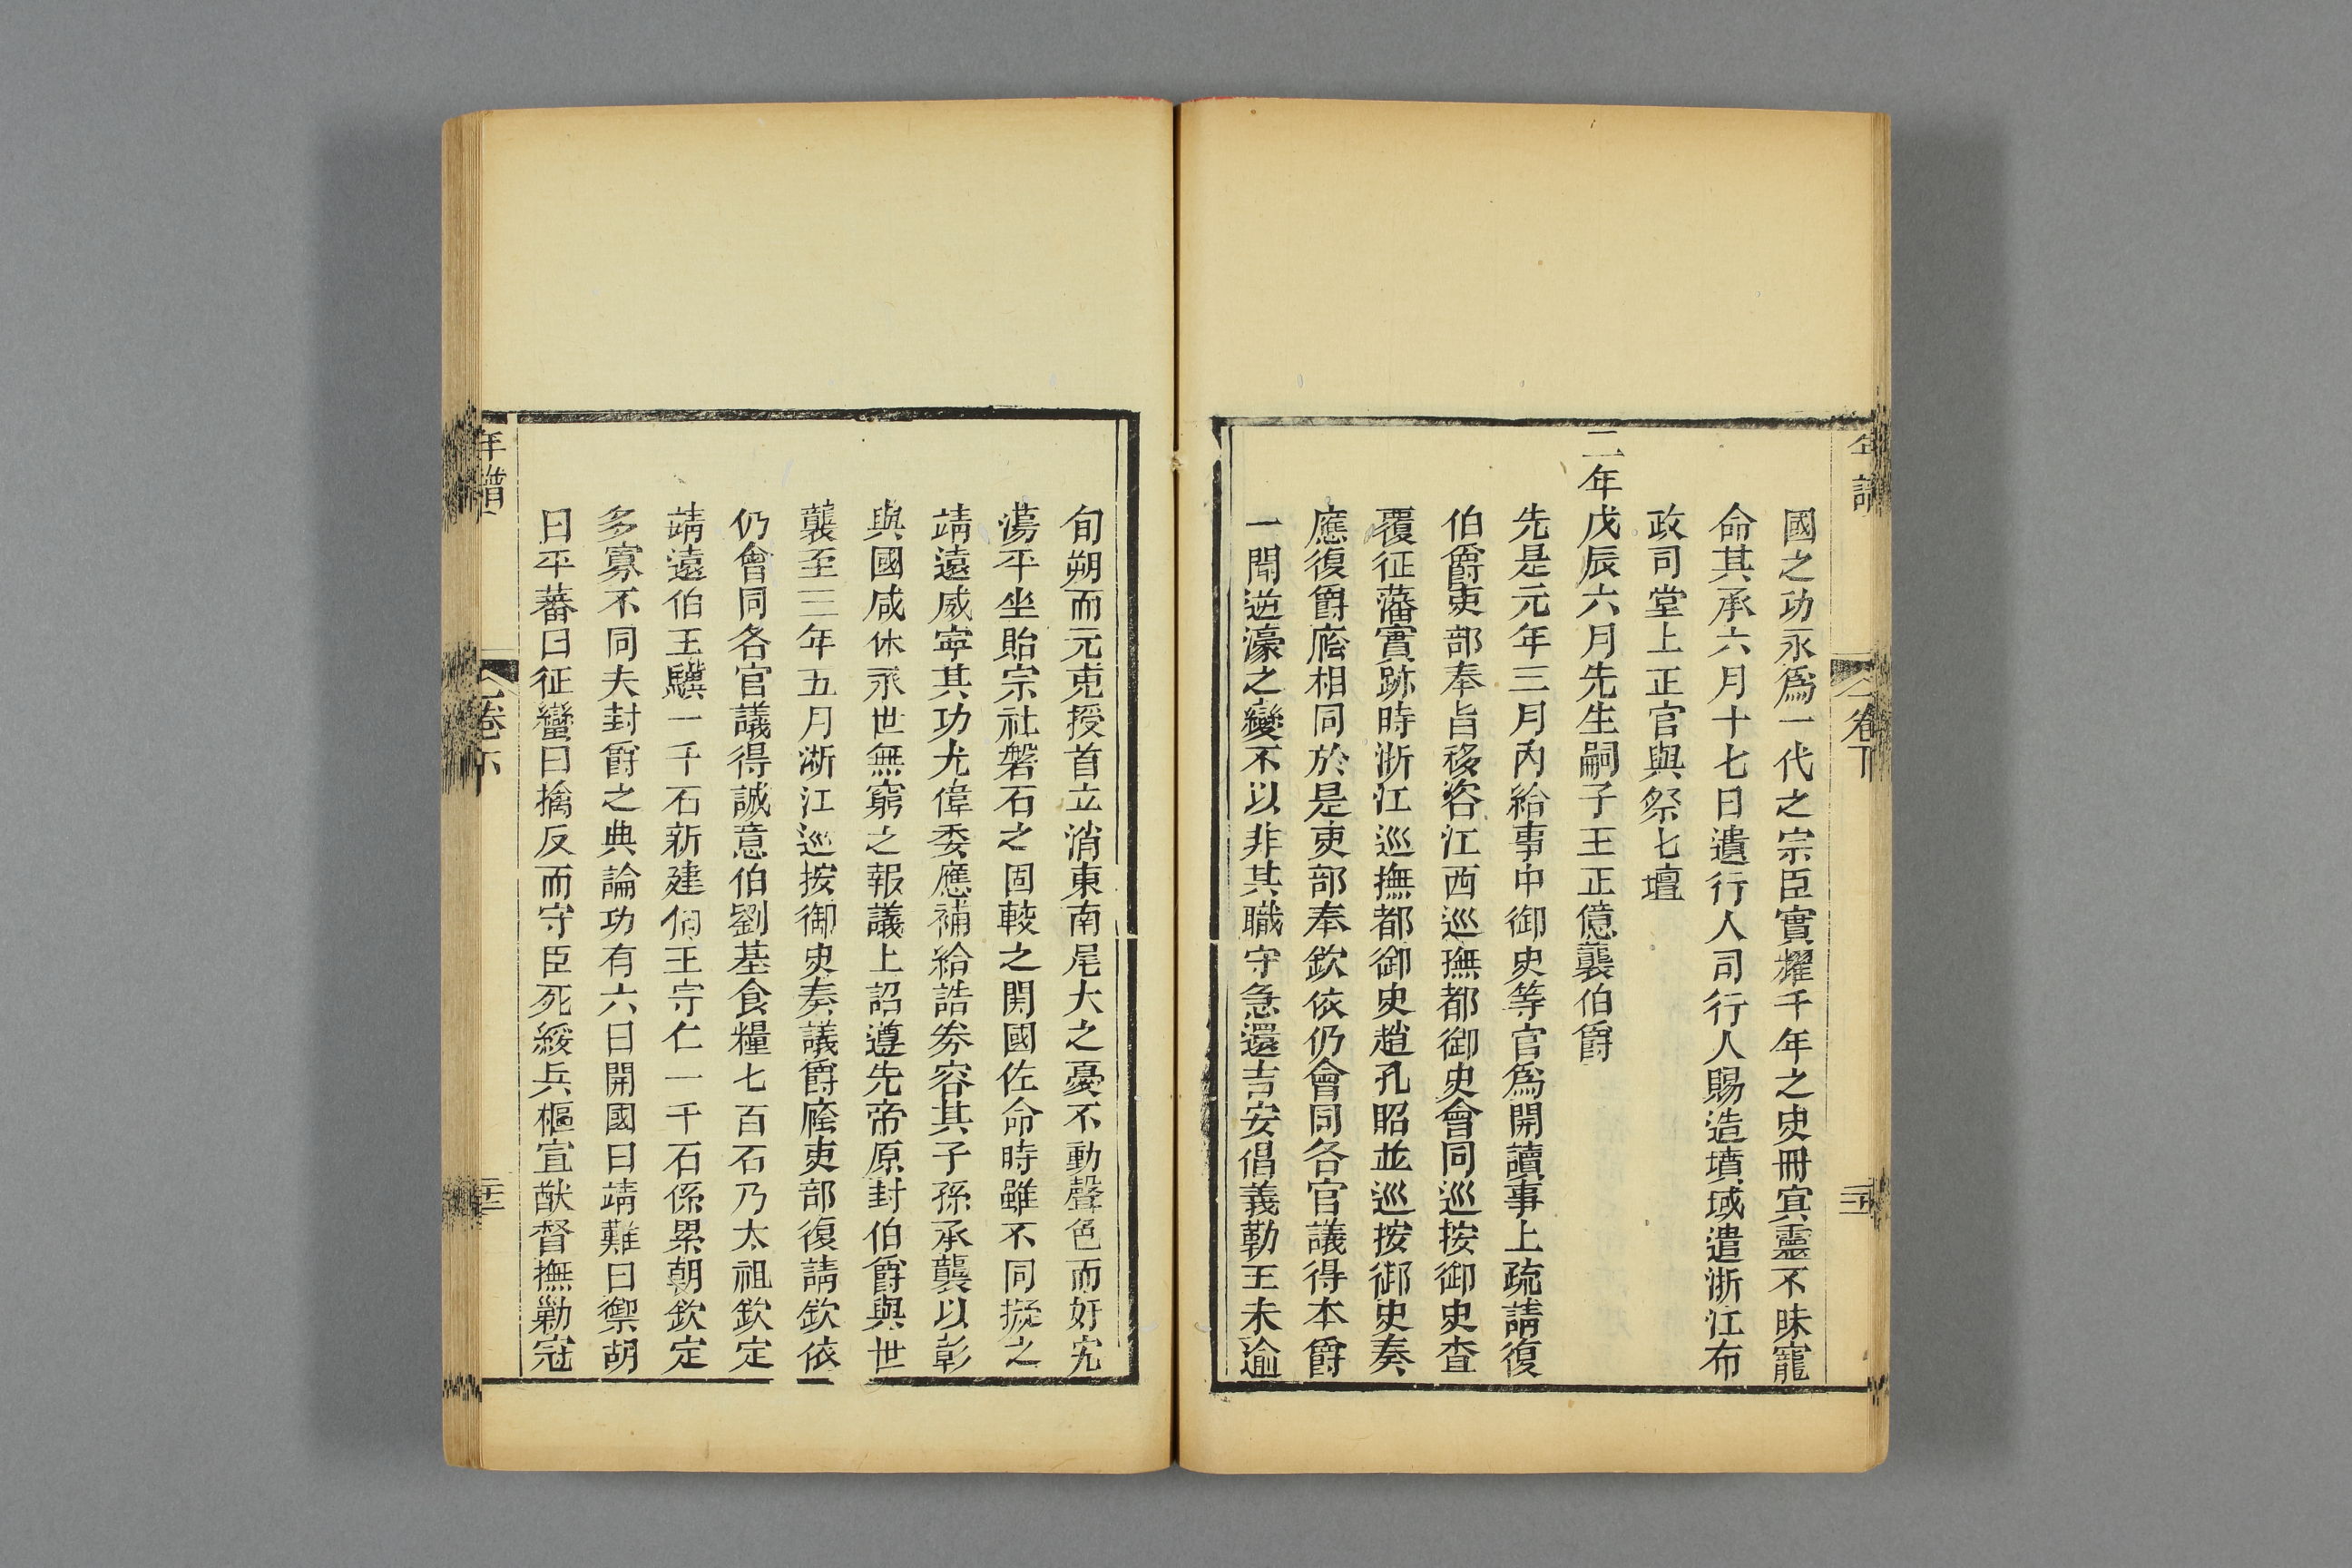 國之功永爲一代之宗臣實耀千年之史冊冥靈不昧寵
命其承六月十七日遣行人司行人賜造墳域遣浙江布
政司堂上正官與祭七壇
二年戊辰六月先生嗣子王正億襲伯爵
先是元年三月內給事中御史等官爲開讀事上疏請復
伯爵吏部奉旨移咨江西巡撫都御史會同巡按御史查
覆征藩實跡時浙江巡撫都御史趙孔昭並巡按御史奏
應復爵廕相同於是吏部奉欽依仍會同各官議得本爵
一聞逆濠之變不以非其職守急還吉安倡義勒王未逾
旬朔而元兇授首立消東南尾大之憂不動聲色而奸宄
蕩平坐貽宗社磐石之固較之開國佐命時雖不同擬之
靖遠威寧其功尤偉委應補給誥券容其子孫承襲以彰
與國咸休永世無窮之報議上詔遵先帝原封伯爵與世
襲至三年五月浙江巡按御史奏議爵廕吏部復請欽依
仍會同各官議得誠意伯劉基食糧七百石乃太祖欽定
靖遠伯王驥一千石新建伯王守仁一千石係累朝欽定
多寡不同夫封爵之典論功有六曰開國曰靖難曰禦胡
曰平蕃曰征蠻曰擒反而守臣死綏兵樞宣猷督撫勦寇
年譜
卷下